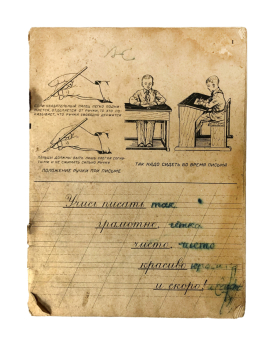 1
1.
УКАЗАТЕЛЬНЫЙ ПАЛЕЦ ЛЕГКО ПОДНИ-
МАЕТСЯ, ОТДЕЛЯЕТСЯ ОТ РУЧКИ; ЭТО ПО-
КАЗЫВАЕТ, ЧТО РУЧКА СВОБОДНО ДЕРЖИТСЯ
2.
ПАЛЬЦЫ ДОЛЖНЫ БЫТЬ ЛИШЬ СЛЕГКА СОГНУ-
ТЫ И НЕ СЖИМАТЬ СИЛЬНО РУЧКИ
ПОЛОЖЕНИЕ РУЧКИ ПРИ ПИСЬМЕ
ТАК НАДО СИДЕТЬ ВО ВРЕМЯ ПИСЬМА
Учись писать так
грамотно,
чисто, чисто
красиво
и скоро!